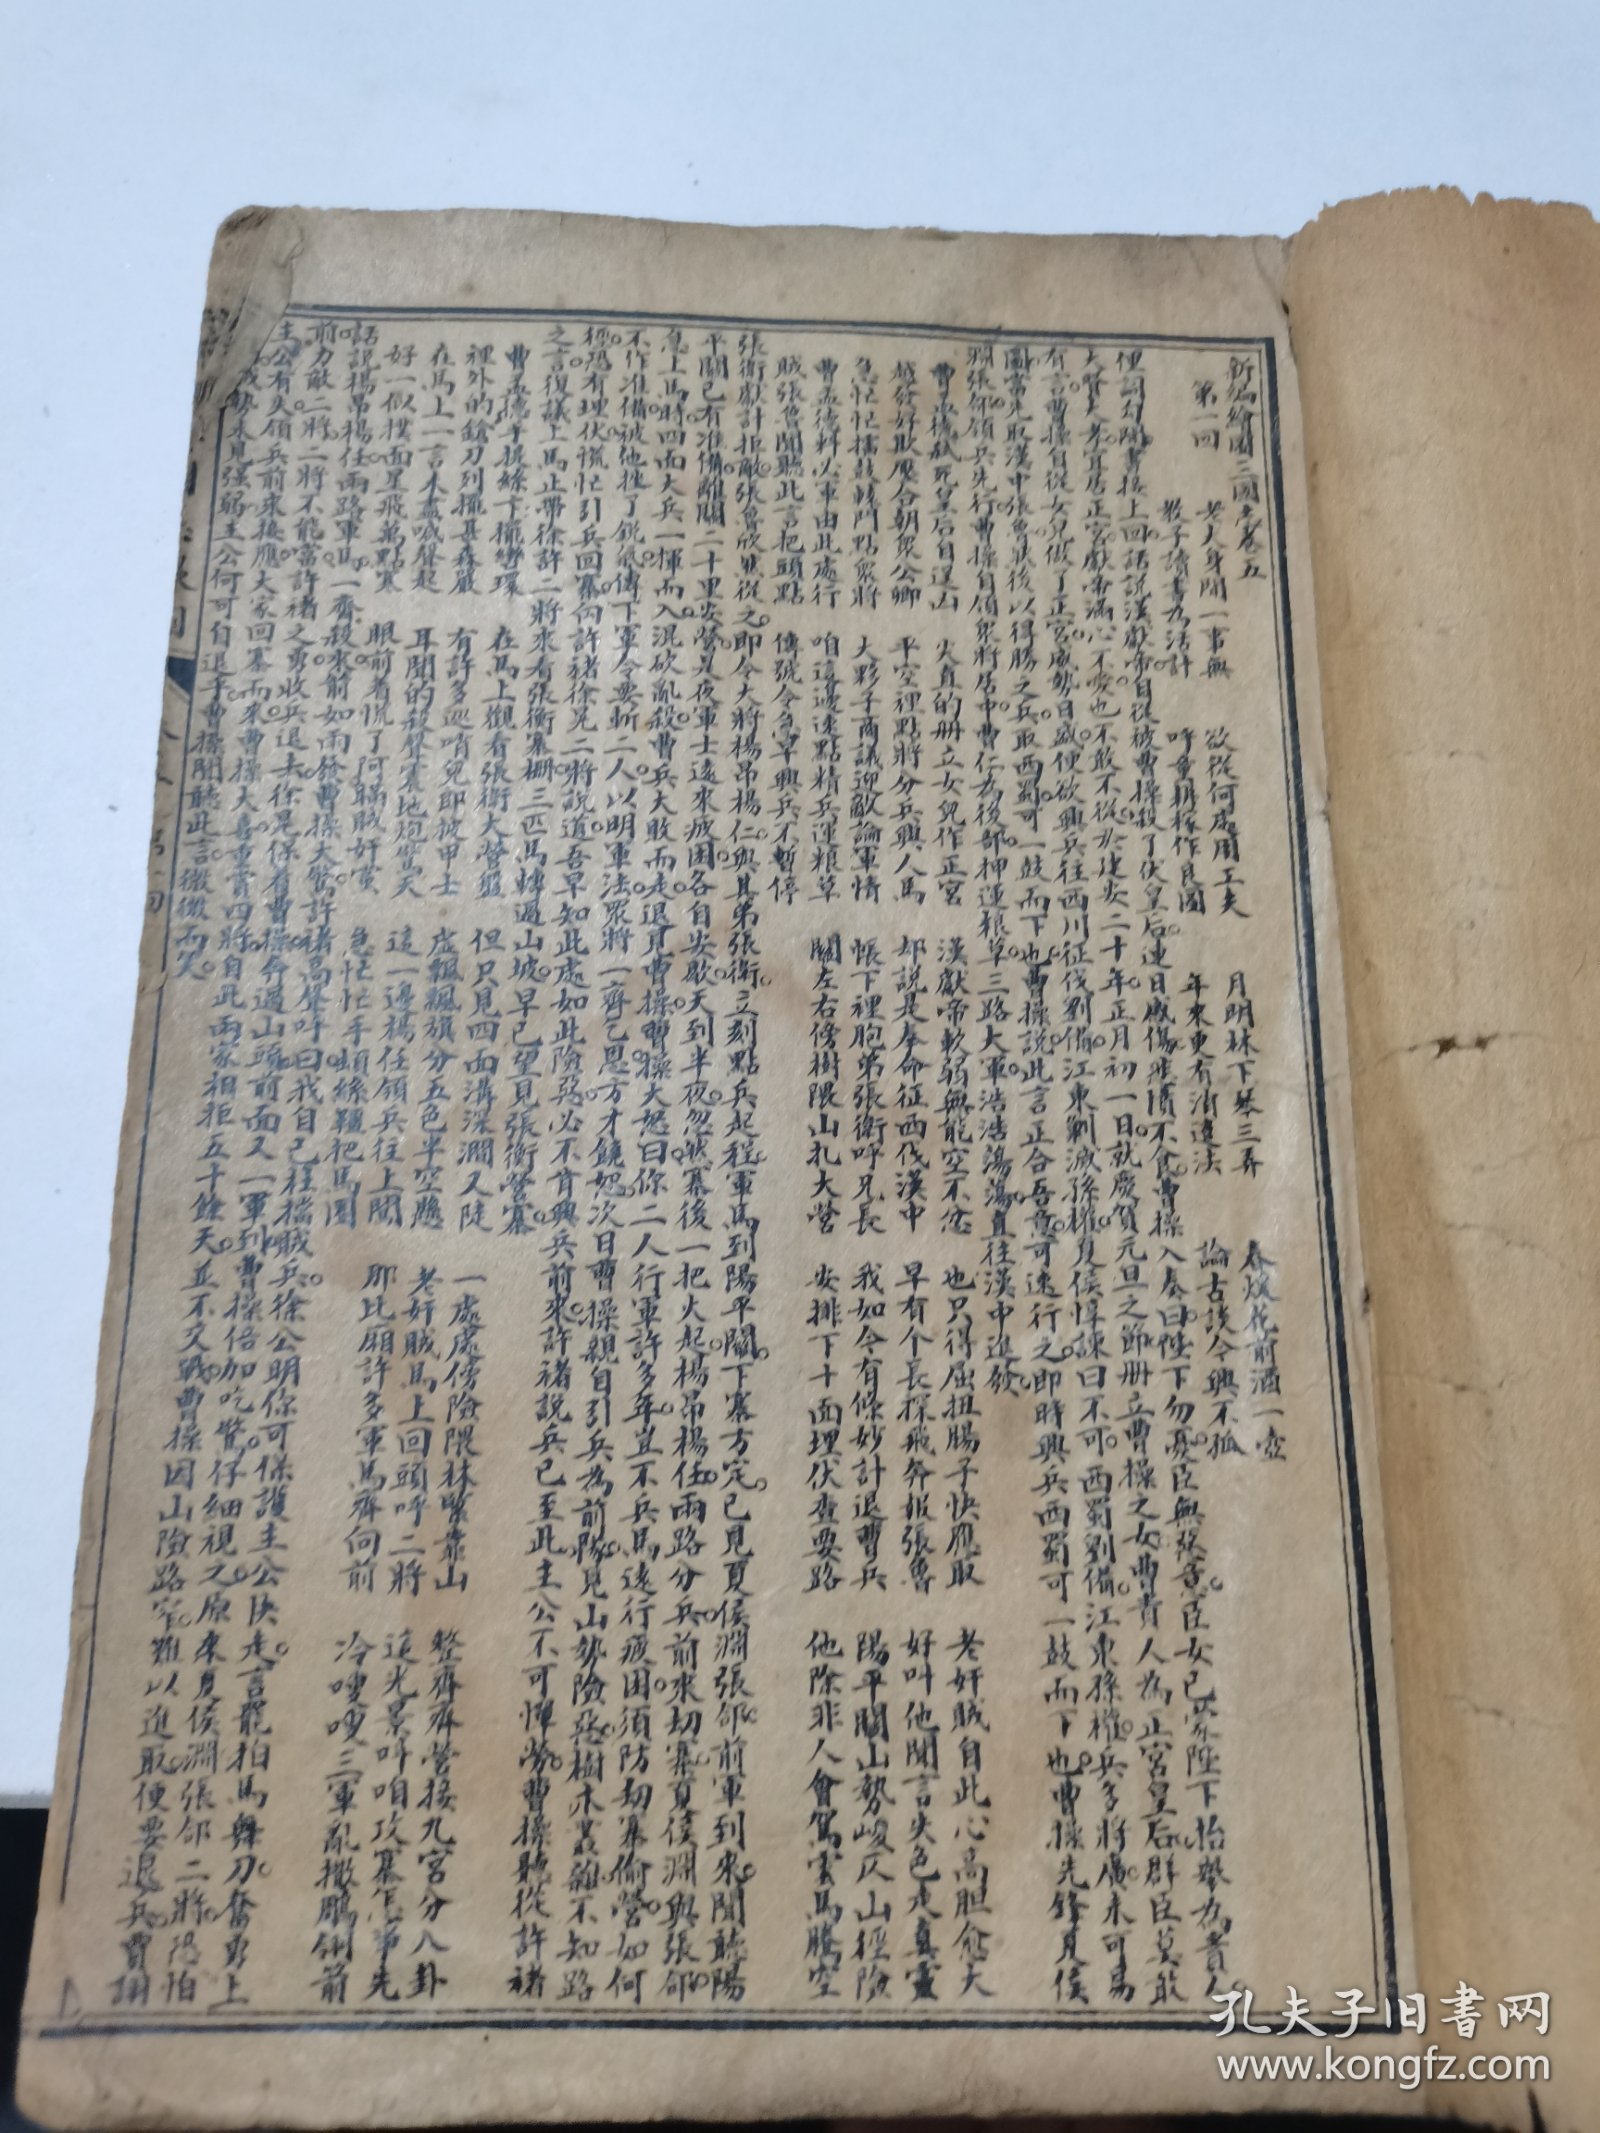 新編繪圖三國志卷五
第一回 老夫身閒一事無 欲從何處用工夫 月明林下琴三弄 春煖花前酒一壺
教子讀書為活計 呼童耕稼作良圖 年來更有消遣法 論古談今興不孤
俚詞勾開書接上回話說漢獻帝自從被曹操殺了伏皇后連日感傷悲憤不食曹操入奏曰陛下勿憂臣無異意臣女已蒙陛下抬舉為貴人
大賢大孝宜居正宮獻帝滿心不喫也不敢不從於建安二十年正月初一日就慶賀元旦之節冊立曹操之女曹貴人為正宮皇后群臣莫敢
有言曹操自從女兒做了正宮威勢日盛便欲興兵往西川征伐劉備江東剿滅孫權夏侯惇諫曰不可西蜀劉備江東孫權兵多將廣未可易
圖當先取漢中張魯然後以得勝之兵取西蜀可一鼓而下也曹操說此言正合吾意可速行之即時興兵西蜀可一鼓而下也曹操先鋒夏侯
淵張郃領兵先行曹操自領衆將居中曹仁為後部押運糧草三路大軍浩浩蕩蕩直往漢中進發
曹孟德弒死皇后自逞山 火真的册立女兒作正宮 漢獻帝軟弱無能空不忿 也只得屈扭腸子快應取 老奸賊自此心高胆愈大
越發好欺壓合朝衆公卿 平空裡點將分兵興人馬 却說是奉命征西伐漢中 早有个長探飛奔報張魯 好叫他聞言失色走真靈
急忙忙擂鼓轅門點衆將 大夥子商議迎敵論軍情 帳下裡胞弟張衛呼兄長 我如今有條妙計退曹兵 陽平關山勢峻仄山徑險
曹孟德料必軍由此處行 咱這邊速點精兵運粮草 關左右傍樹隈山扎大營 安排下十面埋伏查要路 他除非人會駕雲馬騰空
賊張魯聞聽此言把頭點 傳號令急早興兵不暫停
張衛獻計拒敵張魯欣然從之即令大將楊昂楊仁與其弟張衛立刻點兵起程軍馬到陽平關下寨方定已見夏侯淵張郃前軍到來聞聽陽
平關已有准備離關二十里安營是夜軍士遠來疲困各自安歇天到半夜忽然寨後一把火起楊昂楊任兩路分兵前來刧寨夏侯淵與張郃
急上馬時四面大兵一擁而入混砍亂殺曹兵大敗而走退見曹操曹操大怒曰你二人行軍許多年豈不兵馬遠行疲困須防刧寨偷營如何
不作准備被他挫了銳氣傳下軍令要斬二人以明軍法眾將一齊乞恩方才饒恕次日曹操親自引兵為前隊見山勢險惡樹木叢雜不知路
徑恐有埋伏慌忙引兵回寨向許褚徐晃二將說道吾早知此處如此險惡必不肯興兵前來許褚說兵已至此主公不可憚勞曹操聽從許褚
之言復議上馬止帶徐許二將來看張衛寨柵三匹馬轉過山坡早已望見張衛營寨
曹孟德手提絲卞擺轡環 在馬上觀看張衛大營盤 但只見四面溝深澗又陡 一處處傍險隈林緊靠山 整齊齊營接九宮分八卦
裡外的鎗刀列擺甚森嚴 有許多巡哨兒即披甲士 虛飄飄旗分五色半空懸 老奸賊馬上回頭呼二將 這光景呌咱攻寨怎爭先
在馬上一言未盡喊聲起 耳聞的殺聲震地炮哄天 這一邊楊任領兵往上闖 那比廂許多軍馬齊向前 冷嗖嗖三軍亂撒鵰翎箭
好一似撲面星飛萬點寒 眼前者慌了阿瞞賊奸黨 急忙忙手頓絲韁把馬圈
話說楊昂楊任兩路軍馬一齊殺來箭如雨發曹操大驚許褚高聲呼曰我自己柱擋賊兵徐公明你可保護主公快走言罷拍馬舞刀奮勇上
前力敵二將二將不能當許褚之勇收兵退去徐晃保着曹操奔過山頭前面又一軍到曹操倍加吃驚仔細視之原來夏侯淵張郃二將恐怕
主公有失領兵前來接應大家回寨而來曹操大喜重賞四將自此兩家相拒五十餘天並不交戰曹操因山險路窄難以進取便要退兵賈詡
賊勢未見強弱主公何可自退乎曹操聞聽此言微微而笑
孔夫子旧书网
www.kongfz.com